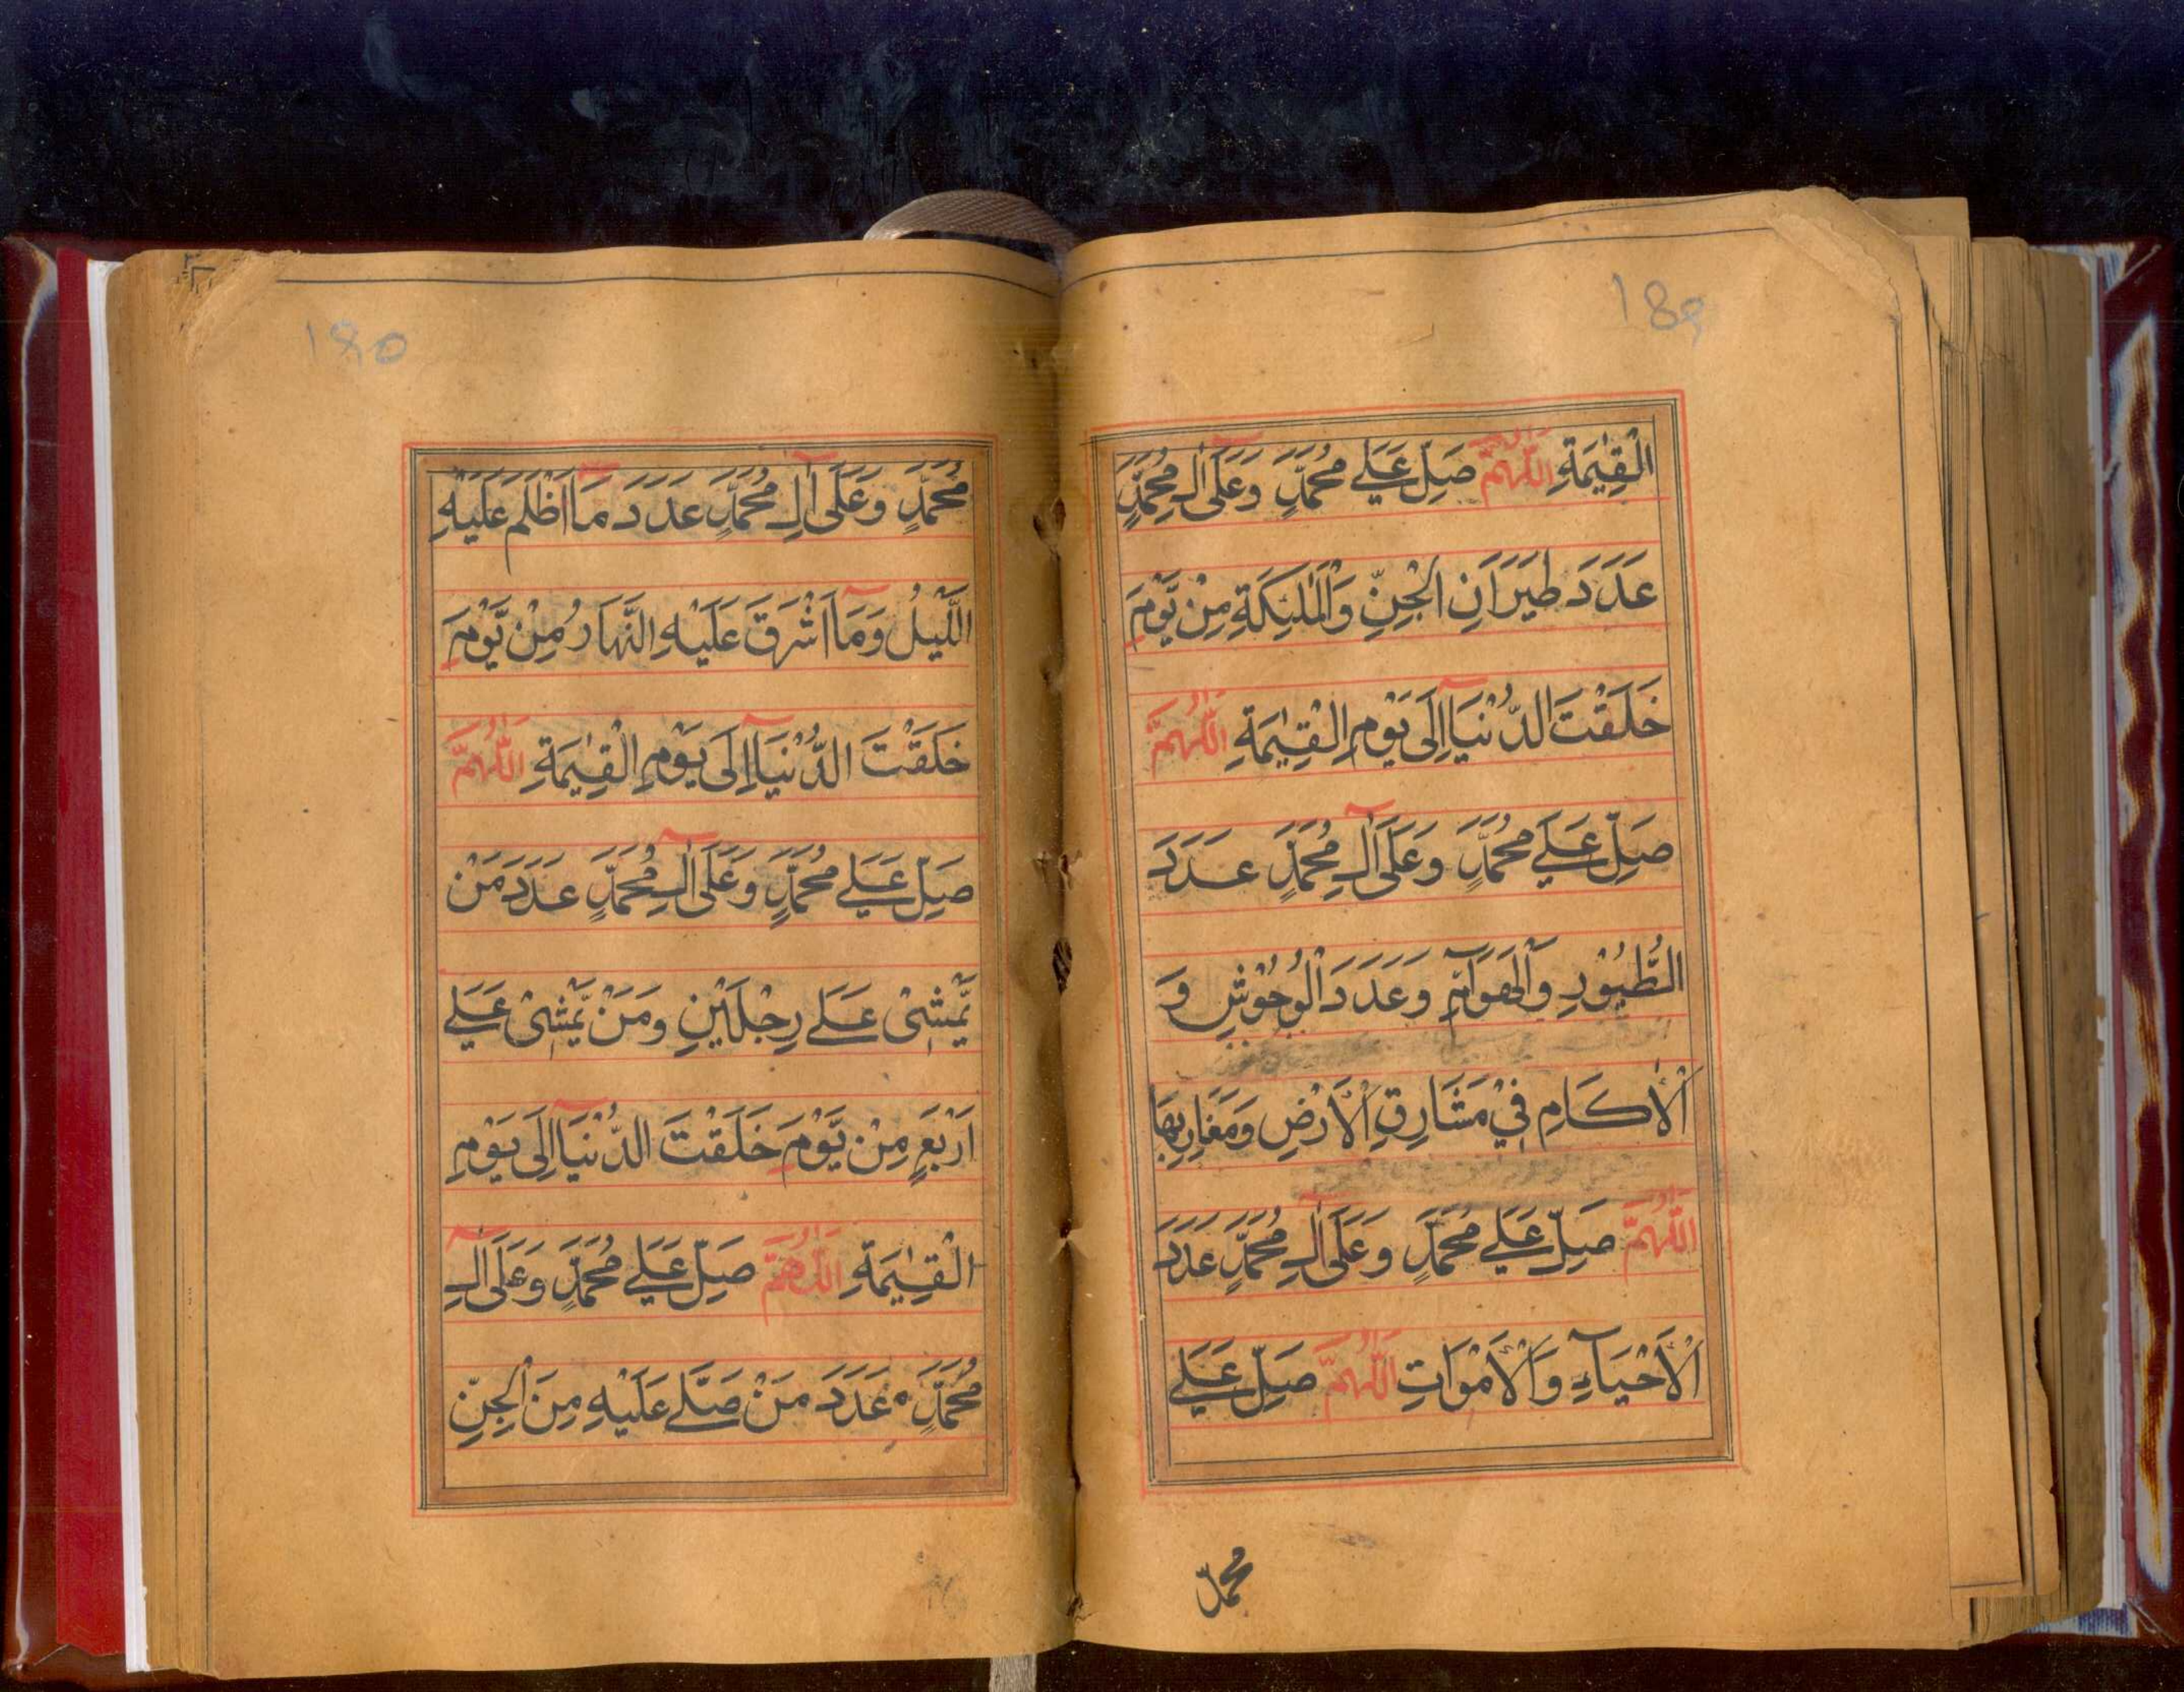 ١٤٩
الْقِيٰمَةِ اَللّٰهُمَّ صَلِّ عَلٰے مُحَمَّدٍ وَّعَلٰٓى اٰلِ مُحَمَّدٍ
عَدَدَ طَيَرَانِ الْجِنِّ وَالْمَلٰٓئِكَةِ مِنْ يَّوْمَ
خَلَقْتَ الدُّنْيَآ اِلٰى يَوْمِ الْقِيٰمَةِ اَللّٰهُمَّ
صَلِّ عَلٰے مُحَمَّدٍ وَّعَلٰٓى اٰلِ مُحَمَّدٍ عَدَدَ
الطُّيُوْرِ وَالْهَوَآمِّ وَعَدَدَ الْوُحُوْشِ وَ
الْاٰكَامِ فِيْ مَشَارِقِ الْاَرْضِ وَمَغَارِبِهَا
اَللّٰهُمَّ صَلِّ عَلٰے مُحَمَّدٍ وَّعَلٰٓى اٰلِ مُحَمَّدٍ عَدَدَ
الْاَحْيَآءِ وَالْاَمْوَاتِ اَللّٰهُمَّ صَلِّ عَلٰے
محمّد
١٥٠
مُحَمَّدٍ وَّعَلٰٓى اٰلِ مُحَمَّدٍ عَدَدَ مَآ اَظْلَمَ عَلَيْهِ
الَّيْلُ وَمَآ اَشْرَقَ عَلَيْهِ النَّهَارُ مِنْ يَّوْمَ
خَلَقْتَ الدُّنْيَآ اِلٰى يَوْمِ الْقِيٰمَةِ اَللّٰهُمَّ
صَلِّ عَلٰے مُحَمَّدٍ وَّعَلٰٓى اٰلِ مُحَمَّدٍ عَدَدَ مَنْ
يَّمْشِيْ عَلٰے رِجْلَيْنِ وَمَنْ يَّمْشِيْ عَلٰے
اَرْبَعٍ مِنْ يَّوْمَ خَلَقْتَ الدُّنْيَآ اِلٰى يَوْمِ
الْقِيٰمَةِ اَللّٰهُمَّ صَلِّ عَلٰے مُحَمَّدٍ وَّعَلٰٓى اٰلِ
مُحَمَّدٍ عَدَدَ مَنْ صَلّٰے عَلَيْهِ مِنَ الْجِنِّ